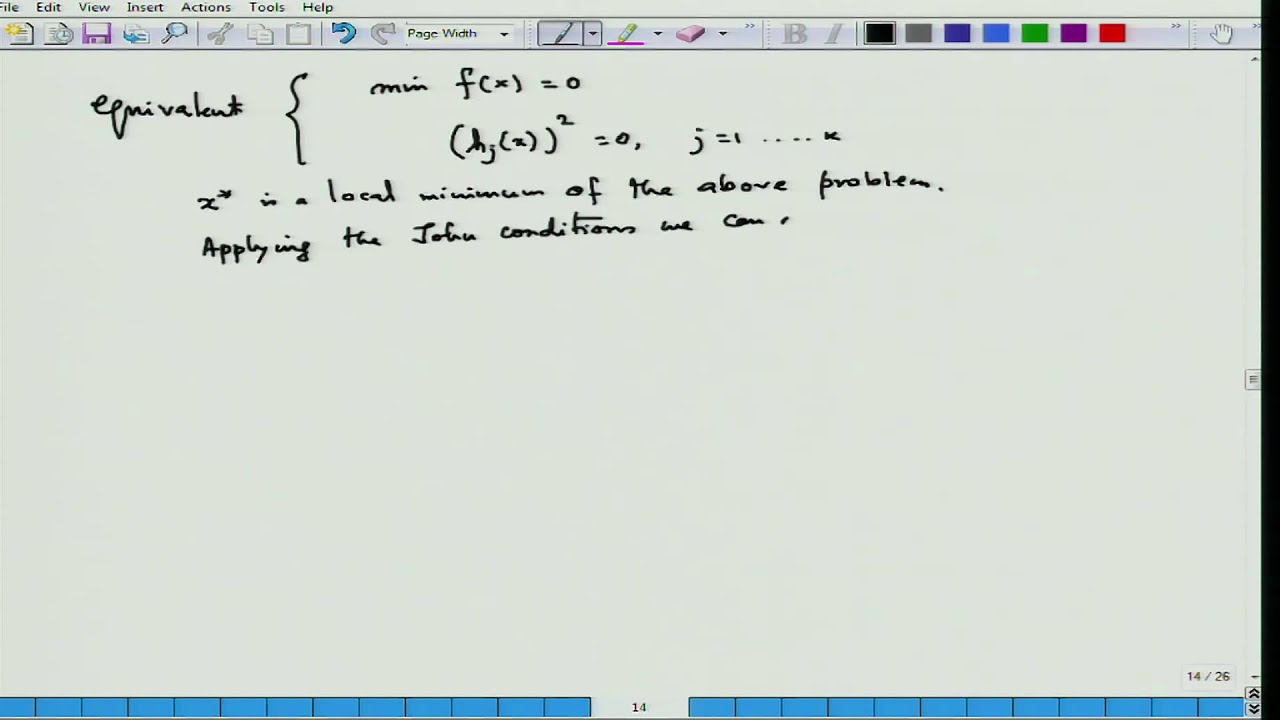 File Edit View Insert Actions Tools Help
Page Width
B I
equivalent { min f(x) = 0
(h_j(x))^2 = 0, j = 1 .... k
x* is a local minimum of the above problem.
Applying the John conditions we can
14 / 26
14